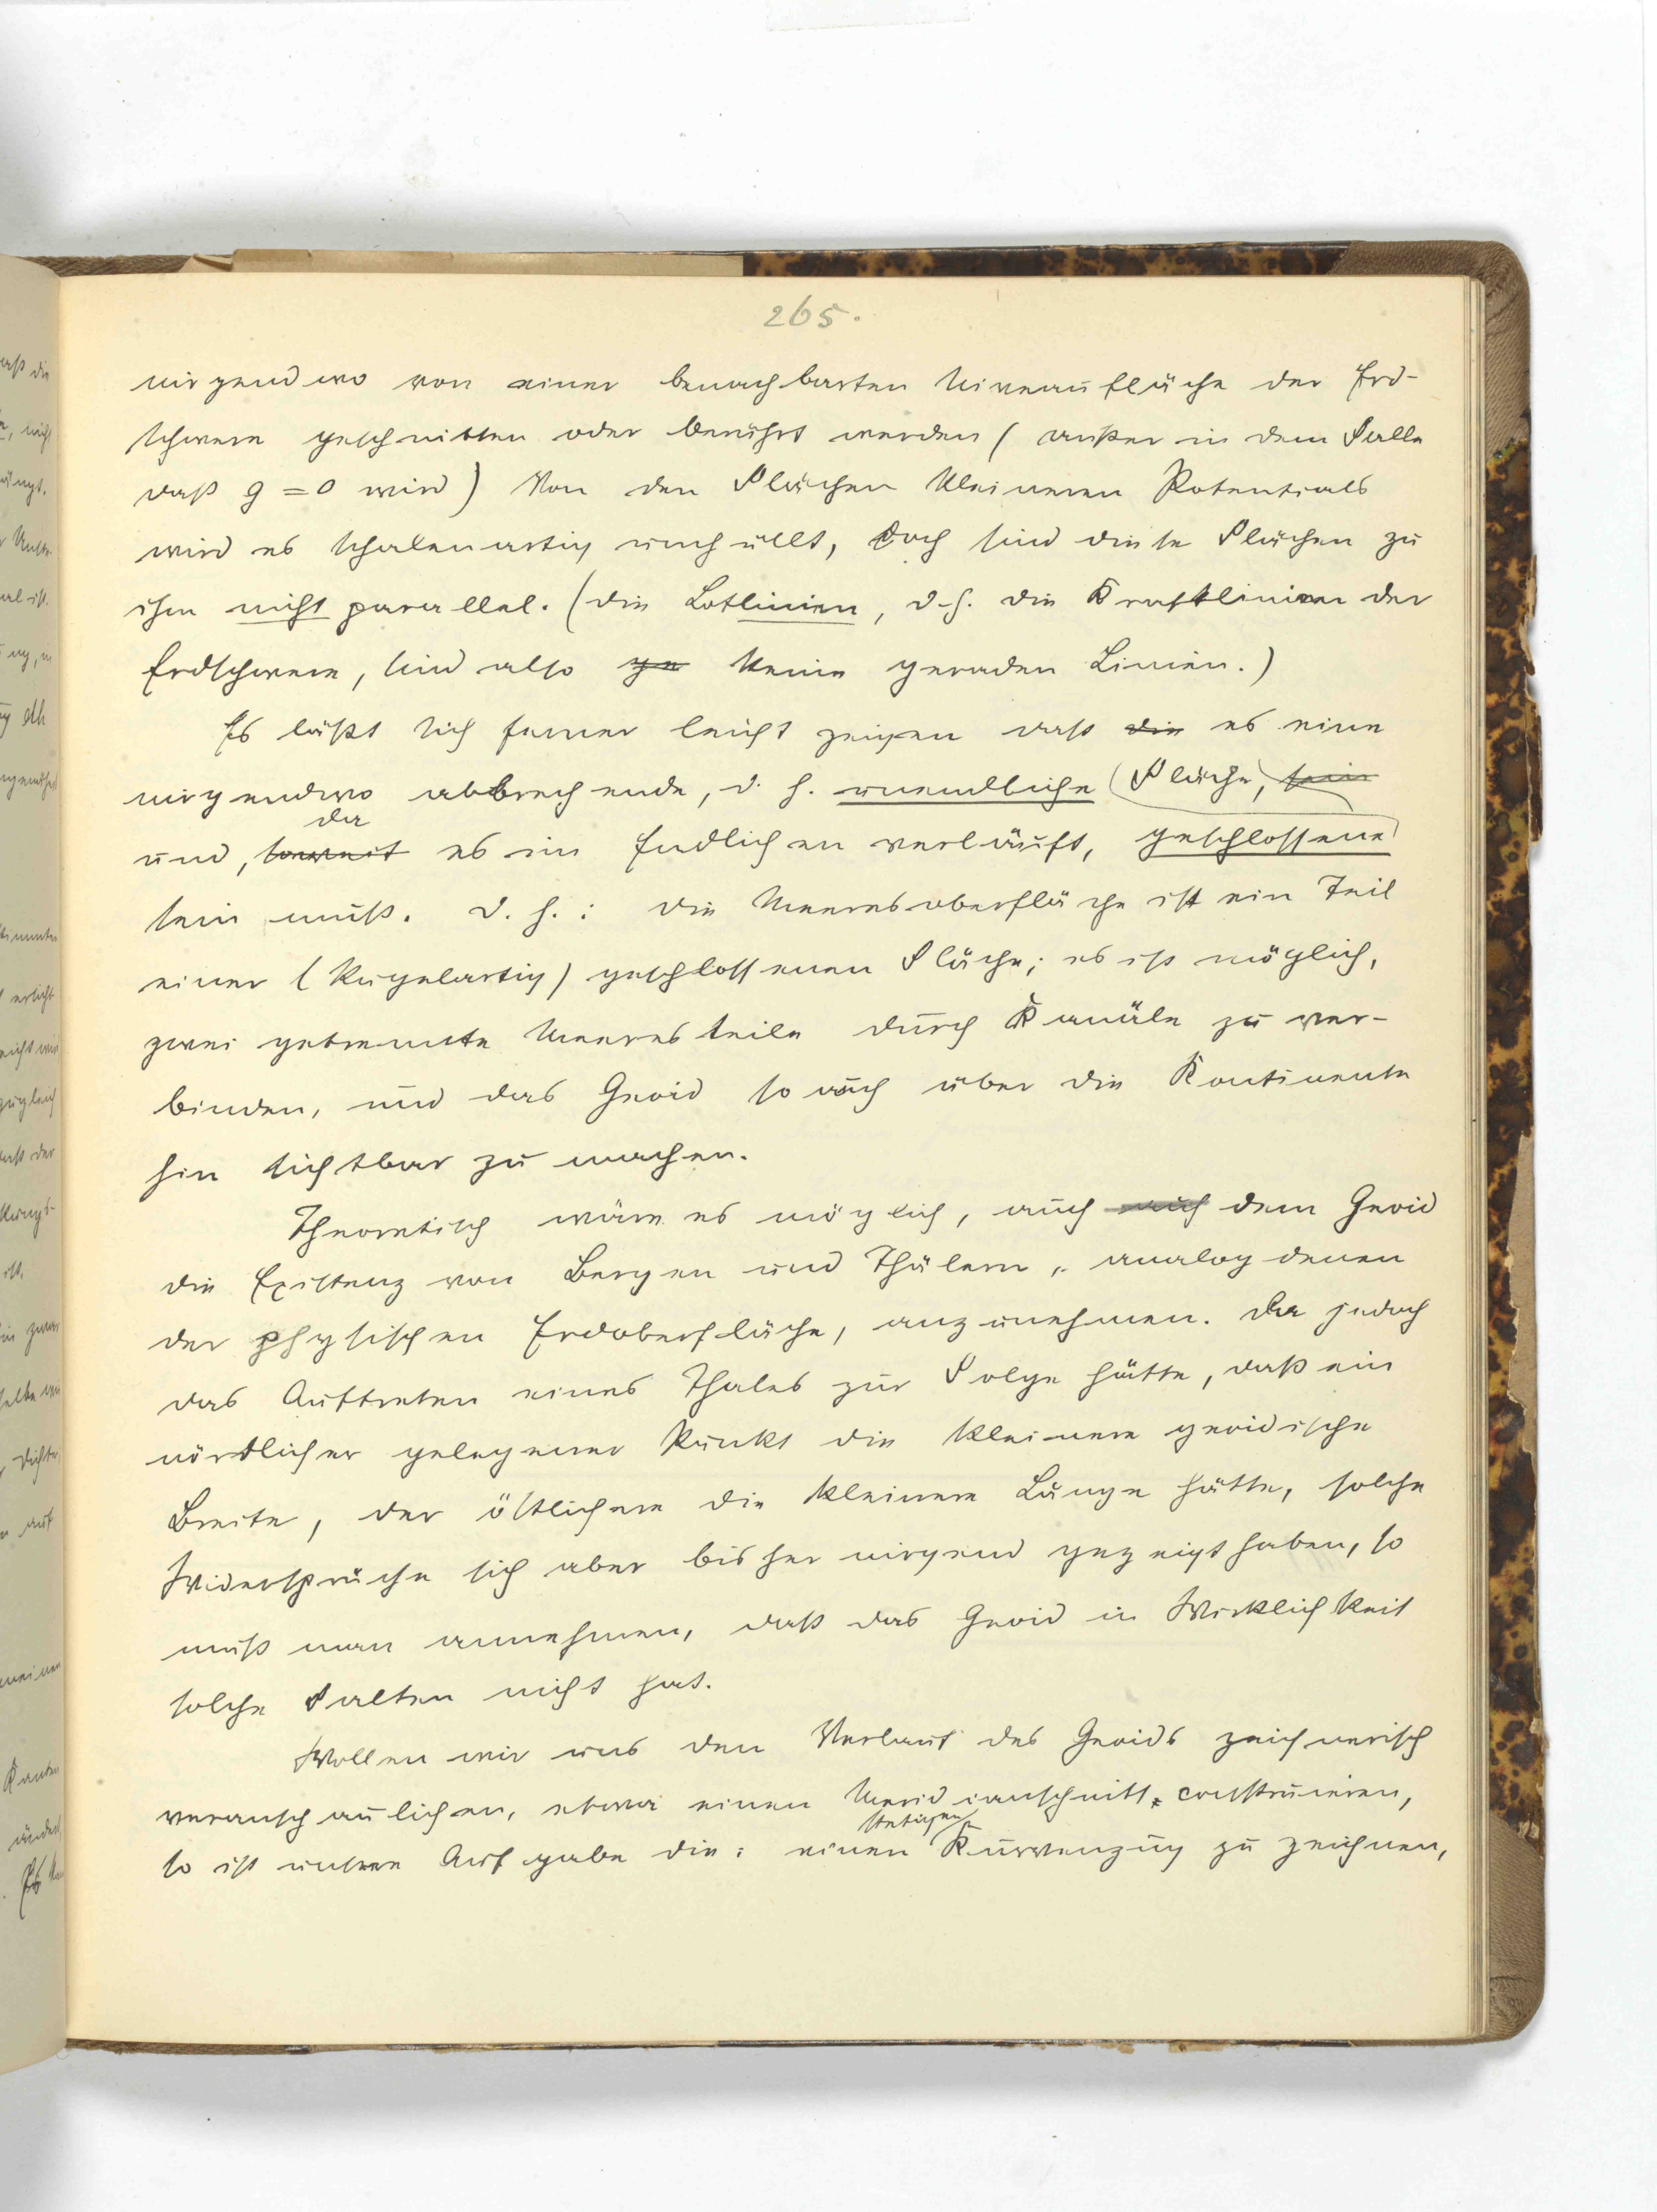 265.
nirgendwo von einer benachbarten Niveaufläche der Erd-
schwere geschnitten oder berührt werden (außer in dem Falle
daß g = 0 wird) Von den Flächen kleineren Potentials
wird es schalenartig umhüllt, doch sind diese Flächen zu
ihm nicht parallel. (die Lotlinien, d.h. die Kraftlinien der
Erdschwere, sind also ge keine geraden Linien.)
Es läßt sich ferner leicht zeigen daß die es eine
nirgendwo abbrechende, d. h. unendliche Fläche, sein
da
und, soweit es im Endlichen verläuft, geschlossene
sein muß. D. h.: die Meeresoberfläche ist ein Teil
einer (kugelartig) geschlossenen Fläche; es ist möglich,
zwei getrennte Meeresteile durch Kanäle zu ver-
binden, und das Geoid so auch über die Kontinente
hin sichtbar zu machen.
Theoretisch wäre es möglich, auch auch dem Geoid
die Existenz von Bergen und Thälern, analog denen
der physischen Erdoberfläche, anzunehmen. Da jedoch
das Auftreten eines Thales zur Folge hätte, daß ein
nördlicher gelegener Punkt die kleinere geoidische
Breite, der östlichere die kleinere Länge hätte, solche
Widersprüche sich aber bisher nirgend gezeigt haben, so
muß man annehmen, daß das Geoid in Wirklichkeit
solche Falten nicht hat.
Wollen wir uns den Verlauf des Geoids zeichnerisch
veranschaulichen, etwa einen Meridianschnitt construieren,
stetigen
so ist unsere Aufgabe die: einen Kurvenzug zu zeichnen,